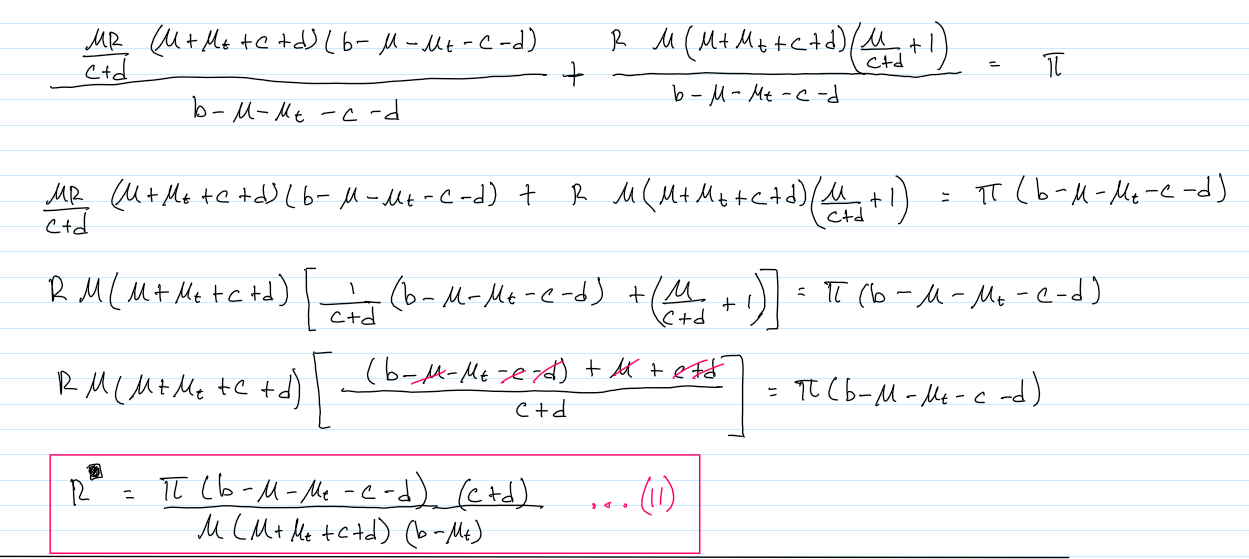 \frac{\frac{μR}{c+d} (μ+μ_t+c+d)(b-μ-μ_t-c-d)}{b-μ-μ_t-c-d} + \frac{R μ(μ+μ_t+c+d)(\frac{μ}{c+d}+1)}{b-μ-μ_t-c-d} = π
\frac{μR}{c+d} (μ+μ_t+c+d)(b-μ-μ_t-c-d) + R μ(μ+μ_t+c+d)(\frac{μ}{c+d}+1) = π(b-μ-μ_t-c-d)
R μ(μ+μ_t+c+d) [\frac{1}{c+d} (b-μ-μ_t-c-d) + (\frac{μ}{c+d}+1)] = π(b-μ-μ_t-c-d)
R μ(μ+μ_t+c+d) [\frac{(b-μ-μ_t-c-d) + μ + c+d}{c+d}] = π(b-μ-μ_t-c-d)
R = \frac{π(b-μ-μ_t-c-d) (c+d)}{μ(μ+μ_t+c+d)(b-μ_t)} ...(11)